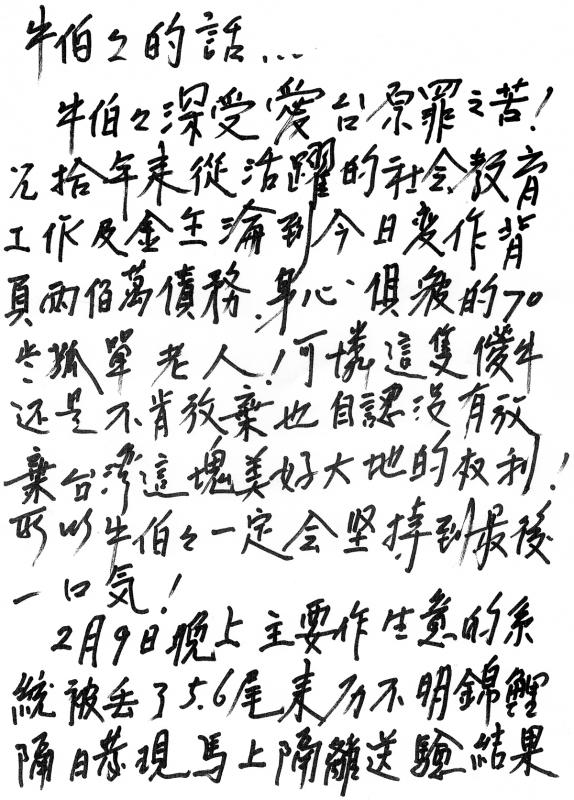 牛伯々的話...
牛伯々深受愛台原罪之苦!
几拾年来從活躍的社会教育
工作及金主淪到今日变作背
負两佰萬債務.身心俱疲的70
岁孤單老人!可憐這隻儍牛
还是不肯放棄也自認没有放
棄台湾這塊美好大地的权利!
所以牛伯々一定会坚持到最後
一口気!
2月9日晚上主要作生意的系
統被丢了5.6尾来历不明錦鯉
隔日発現馬上隔離送驗結果